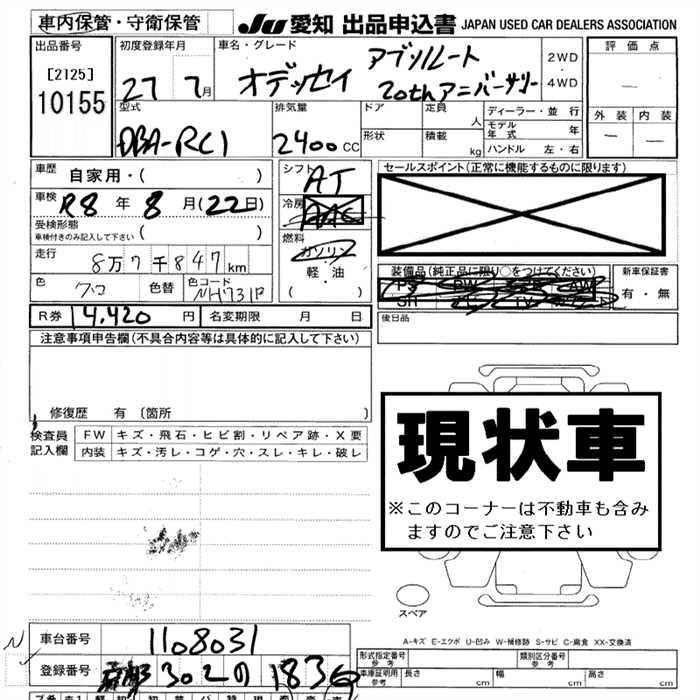 車内保管・守衛保管
JU 愛知 出品申込書 JAPAN USED CAR DEALERS ASSOCIATION
出品番号
[2125]
10155
初度登録年月
27 7月
車名・グレード
オデッセイ アブソルート
20thアニバーサリー
2WD
・
4WD
評価点
－
外装 内装
－ －
型式
DBA-RC1
排気量
2400cc
ドア 定員 人
形状 積載 kg
ディーラー・並行
モデル年式 年
ハンドル 左・右
車歴 自家用・( )
車検 R8年8月(22日)
受検形態
車検付きのみ記入して下さい ( )
走行 8万7千847km
色 クロ 色替 色コード NH731P
シフト AT
冷房 AAC
燃料
ガソリン
軽・油
( )
セールスポイント(正常に機能するものに限ります)
装備品(純正品に限り○をつけてください)
PS PW AW
SR TV
新車保証書
有・無
R券 14,420円 名変期限 月 日
後日品
注意事項申告欄(不具合内容等は具体的に記入して下さい)
修復歴 有 〔箇所 〕
検査員記入欄
FW キズ・飛石・ヒビ割・リペア跡・X要
内装 キズ・汚レ・コゲ・穴・スレ・キレ・破レ
現状車
※このコーナーは不動車も含みますのでご注意下さい
スペア
A-キズ E-エクボ U-凹み W-補修跡 S-サビ C-腐食 XX-交換済
車台番号 1108031
登録番号 302の1836
型式指定番号 参考
類別区分番号 参考
車庫証明用 参考 長さ cm 幅 cm 高さ cm